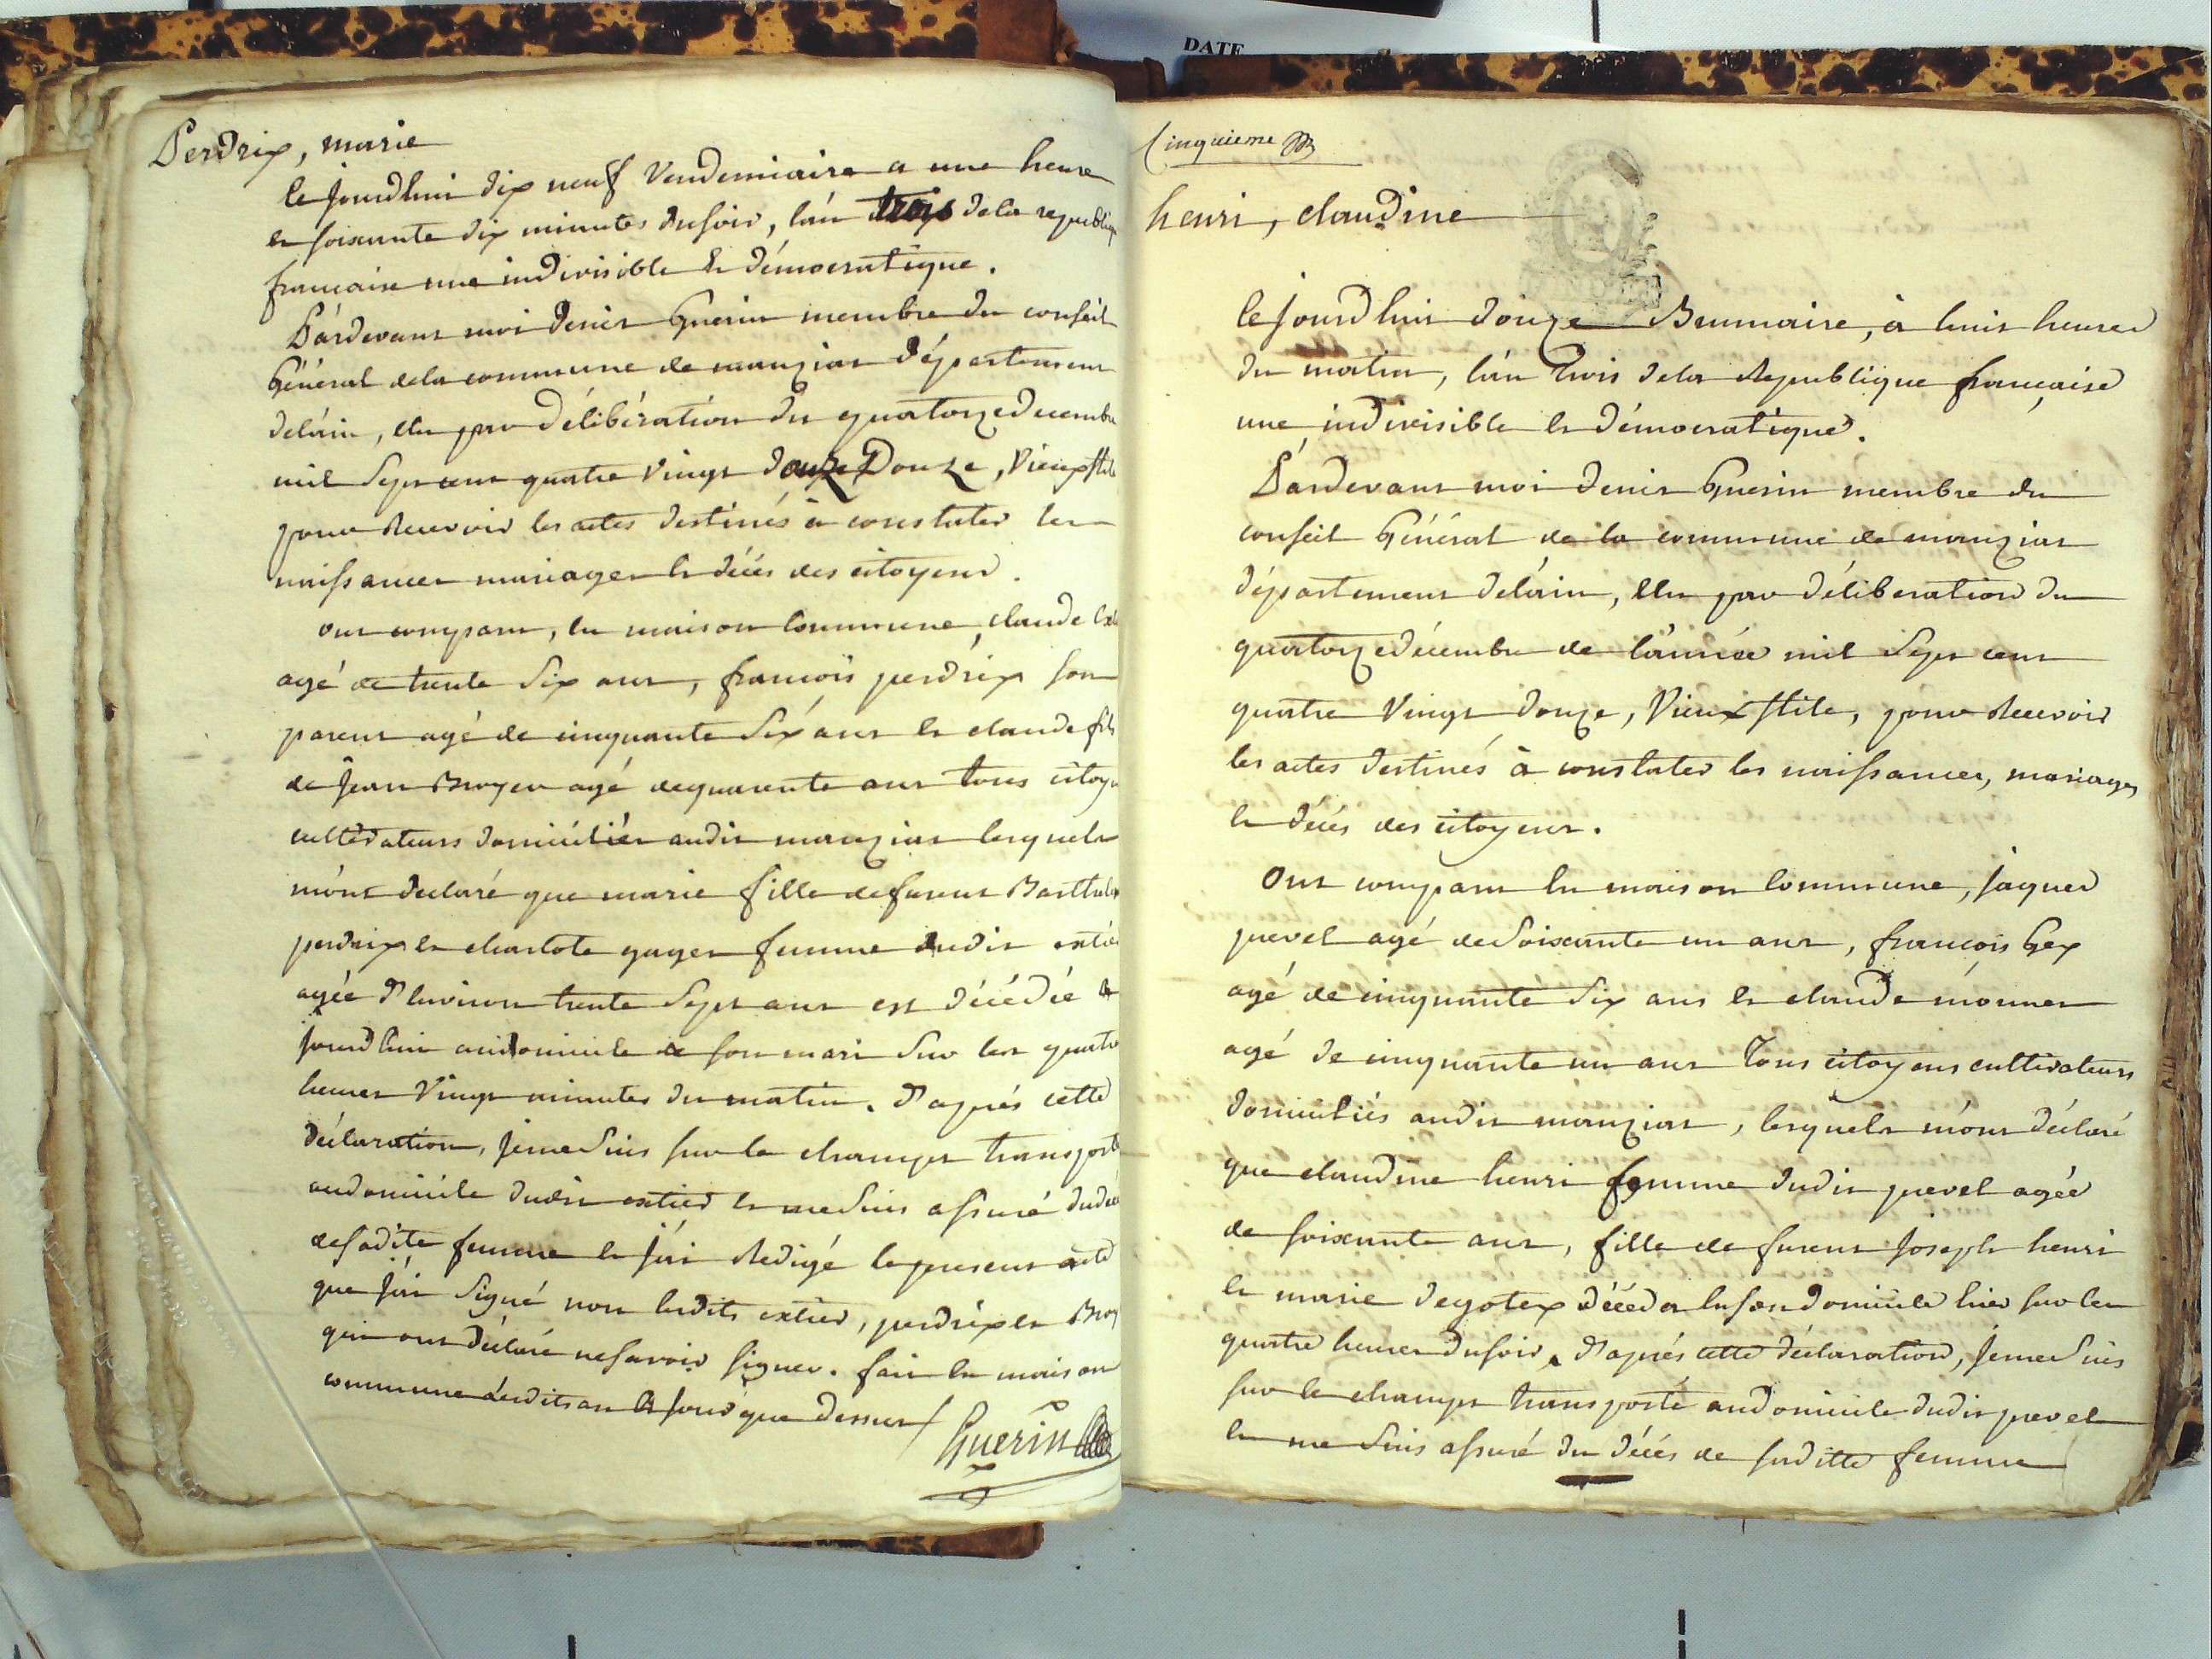 DATE
Perdrix, marie
le jourdhui dix neuf Vendemiaire a une heure
et soixante dix minutes du soir, l'an trois de la republiq
francaise une indivisible et démocratique.
Pardevant moi denis Guerin membre du conseil
Général de la commune de manziat département
de l'ain, elu par délibération du quatorze decembre
mil Sept cent quatre Vingt douze Douze, Vieux stile
pour Recevoir les actes destinés à constater les
naissances mariages et décés des citoyens.
ont comparu, en maison Commune, claude
agé de trente Six ans, francois perdrix son
parent agé de cinquante Six ans et claude fils
de jean Broyer agé de quarante ans tous citoy
cultivateurs domiciliés audit manziat lesquels
m'ont declaré que marie fille de furent Barthele
perdrix et charlote gayer femme dudit extier
agée d'Environ trente Sept ans est décédée
jourdhui au domicile de son mari Sur les quatre
heures Vingt minutes du matin. d'aprés cette
déclaration, je me Suis sur le champt transport
au domicile dudit extier et me Suis assuré du dec
de sadite femme et j'ai Redigé le present acte
que j'ai Signé non lesdits extier, perdrix et Broy
qui ont déclaré ne savoir signer. fait en maison
commune lesdits an et jour que dessus
Guerin
Cinquieme
henri, claudine
le jourdhui douze Brumaire, à huit heures
du matin, l'an trois de la Republique francaise
une indivisible et démocratique.
Pardevant moi denis Guerin membre du
conseil Général de la commune de manziat
département de l'ain, elu par déliberation du
quatorze décembre de l'année mil Sept cent
quatre Vingt douze, Vieux stile, pour Recevoir
les actes destinés à constater les naissances, mariages
et décés des citoyens.
Ont comparu en maison Commune, jaques
prevel agé de Soixante un ans, francois Gex
agé de cinquante Six ans et claude monnet
agé de cinquante un ans Tous citoyens cultivateurs
domiciliés audit manziat, lesquels m'ont déclaré
que claudine henri femme dudit prevel agée
de soixante ans, fille de furent joseph henri
et marie degotex décéda en son domicile hier sur les
quatre heures du soir. d'aprés cette déclaration, je me Suis
sur le champt transporté au domicile dudit prevel
et me Suis assuré du décés de saditte femme